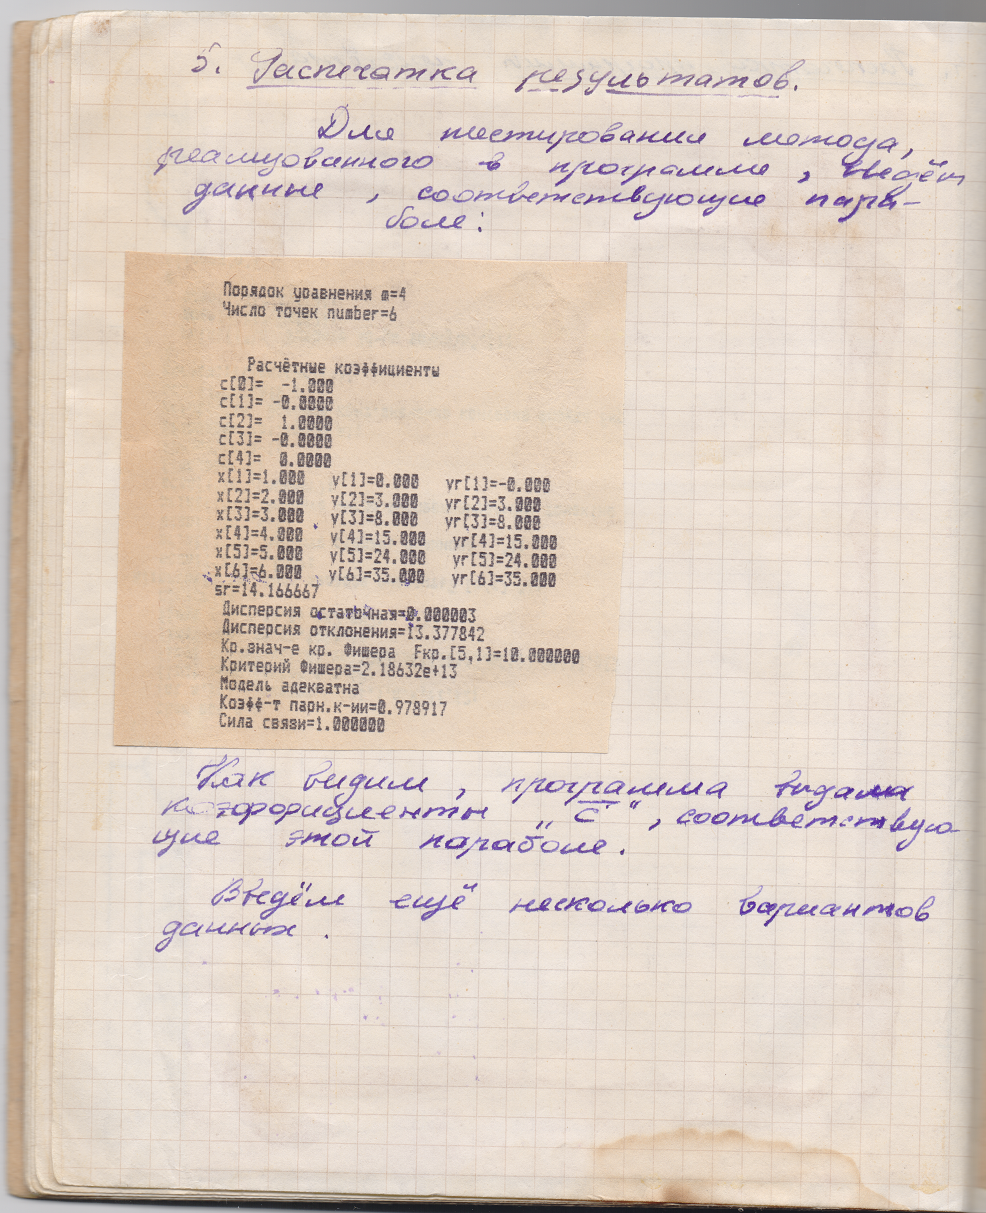 5. Распечатка результатов.
Для тестирования метода,
реализованного в программе, введём
данные, соответствующие пара-
боле:
Порядок уравнения m=4
Число точек number=6
Расчётные коэффициенты
c[0]= -1.000
c[1]= -0.0000
c[2]= 1.0000
c[3]= -0.0000
c[4]= 0.0000
x[1]=1.000 y[1]=0.000 yr[1]=-0.000
x[2]=2.000 y[2]=3.000 yr[2]=3.000
x[3]=3.000 y[3]=8.000 yr[3]=8.000
x[4]=4.000 y[4]=15.000 yr[4]=15.000
x[5]=5.000 y[5]=24.000 yr[5]=24.000
x[6]=6.000 y[6]=35.000 yr[6]=35.000
sr=14.166667
Дисперсия остаточная=0.000003
Дисперсия отклонения=13.377842
Кр.знач-е кр. Фишера Fкр.[5,1]=10.000000
Критерий Фишера=2.18632e+13
Модель адекватна
Коэфф-т парн.к-ии=0.978917
Сила связи=1.000000
Как видим, программа выдала
коэффициенты „C“, соответствую-
щие этой параболе.
Введём ещё несколько вариантов
данных.